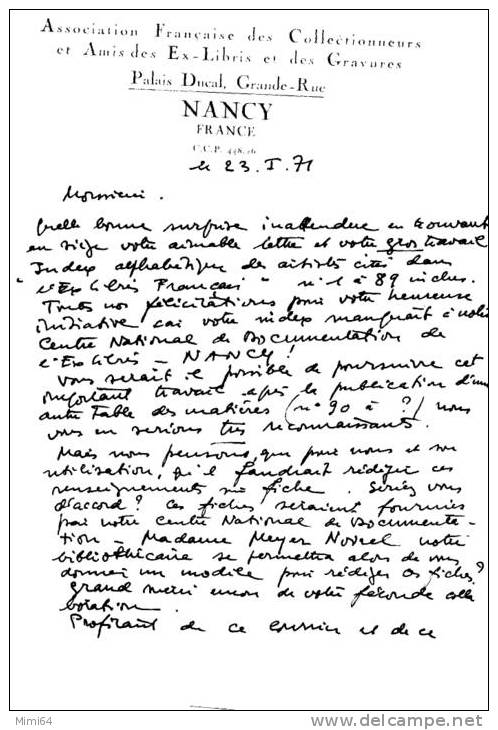 Association Française des Collectionneurs
et Amis des Ex-Libris et des Gravures
Palais Ducal, Grande-Rue
NANCY
FRANCE
C.C.P. 448.16
le 23.I.71
Monsieur.
Quelle bonne surprise inattendue en trouvant
en siège votre aimable lettre et votre gros travail
"Index alphabétique des artistes cités dans
"l'Ex Libris Français" n° 1 à 89 inclus.
Toutes nos félicitations pour votre heureuse
initiative car votre index manquait à notre
Centre National de Documentation de
l'Ex libris - NANCY!
Vous serait-il possible de poursuivre cet
important travail après la publication d'une
autre Table des matières (n° 90 à ?) nous
vous en serions très reconnaissants.
Mais nous pensons, que pour nous et son
utilisation, qu'il faudrait rédiger ces
renseignements sur fiche. Seriez vous
d'accord? Ces fiches seraient fournies
par notre Centre National de Documenta-
tion - Madame Meyer Noirel notre
bibliothécaire se permettra alors de vous
donner un modèle pour rédiger ces fiches?
Grand merci encore de votre féconde colla
boration.
Profitant de ce courrier et de ce
Mimi64
delcampe.net